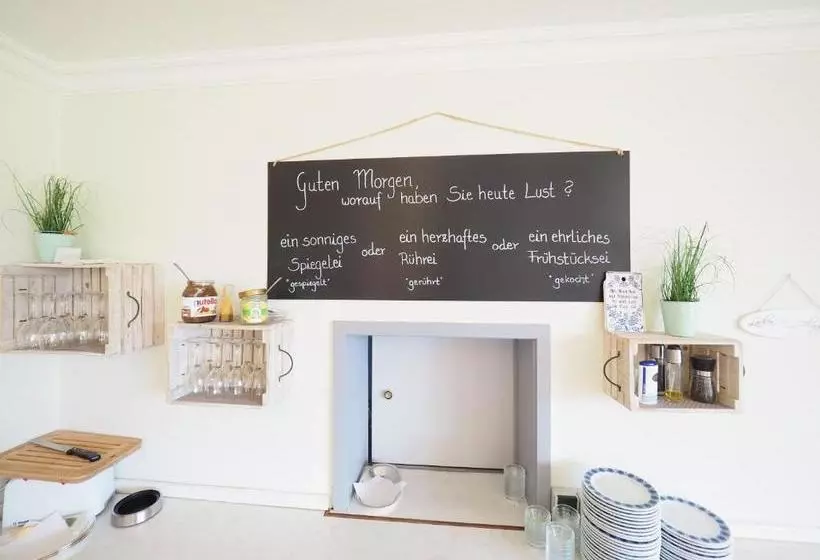 Guten Morgen,
worauf haben Sie heute Lust ?
ein sonniges
Spiegelei
"gespiegelt"
oder
ein herzhaftes
Rührei
"gerührt"
oder
ein ehrliches
Frühstücksei
"gekocht"
nutella